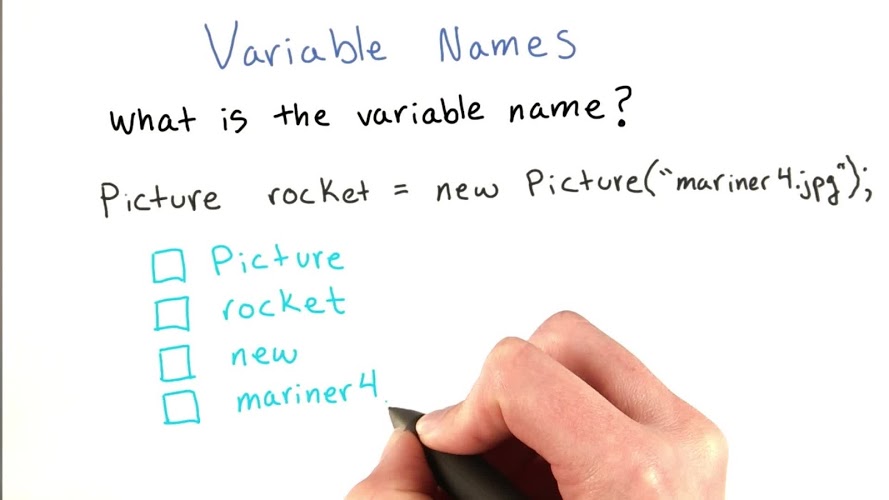 Variable Names
What is the variable name?
Picture rocket = new Picture("mariner4.jpg");
Picture
rocket
new
mariner4.